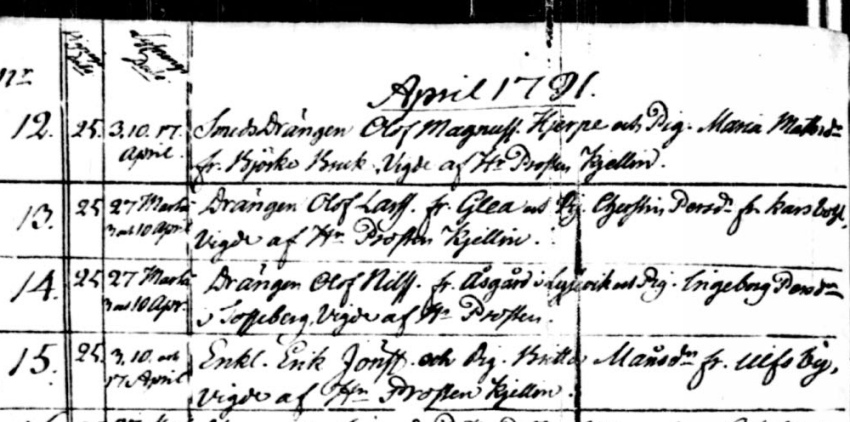 Nr
April 1791.
12. 25. 3. 10. 17. April. Smeds Drängen Olof Magnuss. Hjerpe och Pig. Maria Matsdr
fr. Björke Bruk. Vigde af Hr Prosten Kjellin.
13. 25 27 Martii 3 och 10 April Drängen Olof Larss. fr. Glea och Pig. Cherstin Persdr fr.
Vigde af Hr Prosten Kjellin.
14. 25 27 Martii 3 och 10 Apr. Drängen Olof Nilss. fr. Åsgård i och Pig. Ingeborg Persdr
i Vigde af Hr Prosten.
15. 25. 3. 10. och 17 April Enkl. Erik Jönss. och Pig. Britta Månsdr fr. Ulfsby,
Vigde af Hr Prosten Kjellin.